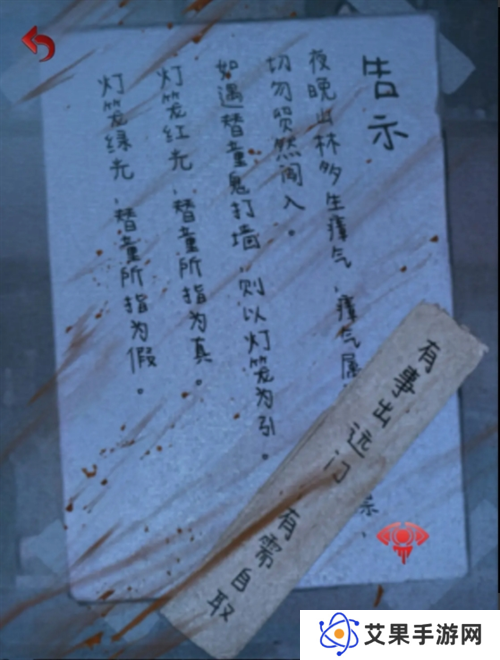 告示
夜晚山林多生瘴气，瘴气属
切勿贸然闯入。
如遇替童鬼打墙，则以灯笼为引。
灯笼红光，替童所指为真。
灯笼绿光，替童所指为假。
有事出远门
有需自取
艾果手游网